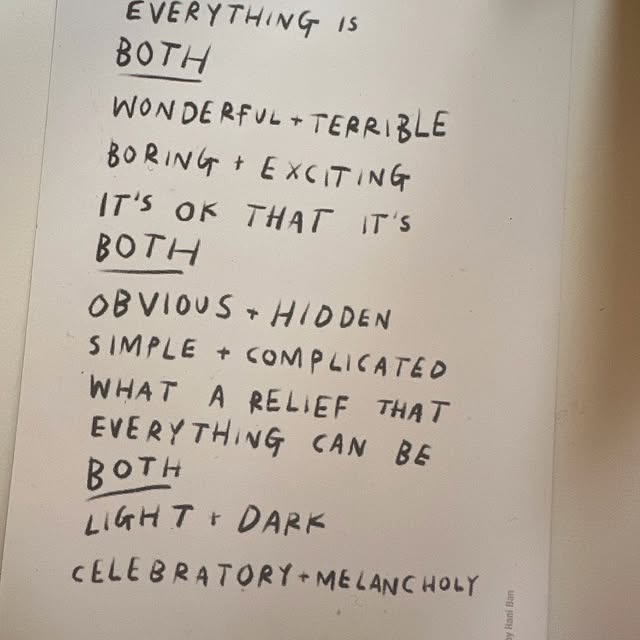 EVERYTHING IS
BOTH
WONDERFUL + TERRIBLE
BORING + EXCITING
IT'S OK THAT IT'S
BOTH
OBVIOUS + HIDDEN
SIMPLE + COMPLICATED
WHAT A RELIEF THAT
EVERYTHING CAN BE
BOTH
LIGHT + DARK
CELEBRATORY + MELANCHOLY
by Rani Ban